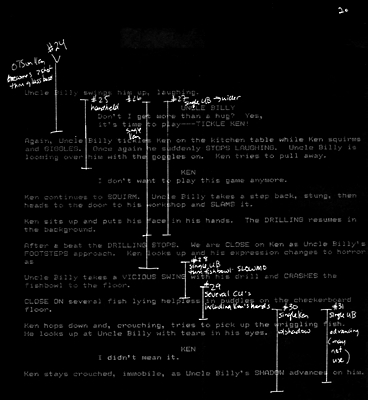 20
#24
OTS on Ken
becomes 2 shot
thru glass bowl
Uncle Billy swings him up, laughing.
#25
handheld
#26
single
Ken
#27
single UB → wider
UNCLE BILLY
Don't I get more than a hug? Yes,
it's time to play---TICKLE KEN!
Again, Uncle Billy tickles Ken on the kitchen table while Ken squirms
and GIGGLES. Once again he suddenly STOPS LAUGHING. Uncle Billy is
looming over him with the goggles on. Ken tries to pull away.
KEN
I don't want to play this game anymore.
Ken continues to SQUIRM. Uncle Billy takes a step back, stung, then
heads to the door to his workshop and SLAMS it.
Ken sits up and puts his face in his hands. The DRILLING resumes in
the background.
After a beat the DRILLING STOPS. We are CLOSE on Ken as Uncle Billy's
FOOTSTEPS approach. Ken looks up and his expression changes to horror
as
#28
single UB
thru fishbowl SLOWMO
Uncle Billy takes a VICIOUS SWING with his drill and CRASHES the
fishbowl to the floor.
#29
several CU's
including Ken's hands
CLOSE ON several fish lying helpless in puddles on the checkerboard
floor.
#30
single Ken
w/shadow
#31
single UB
advancing
(may
not
use)
Ken hops down and, crouching, tries to pick up the wriggling fish.
He looks up at Uncle Billy with tears in his eyes.
KEN
I didn't mean it.
Ken stays crouched, immobile, as Uncle Billy's SHADOW advances on him.